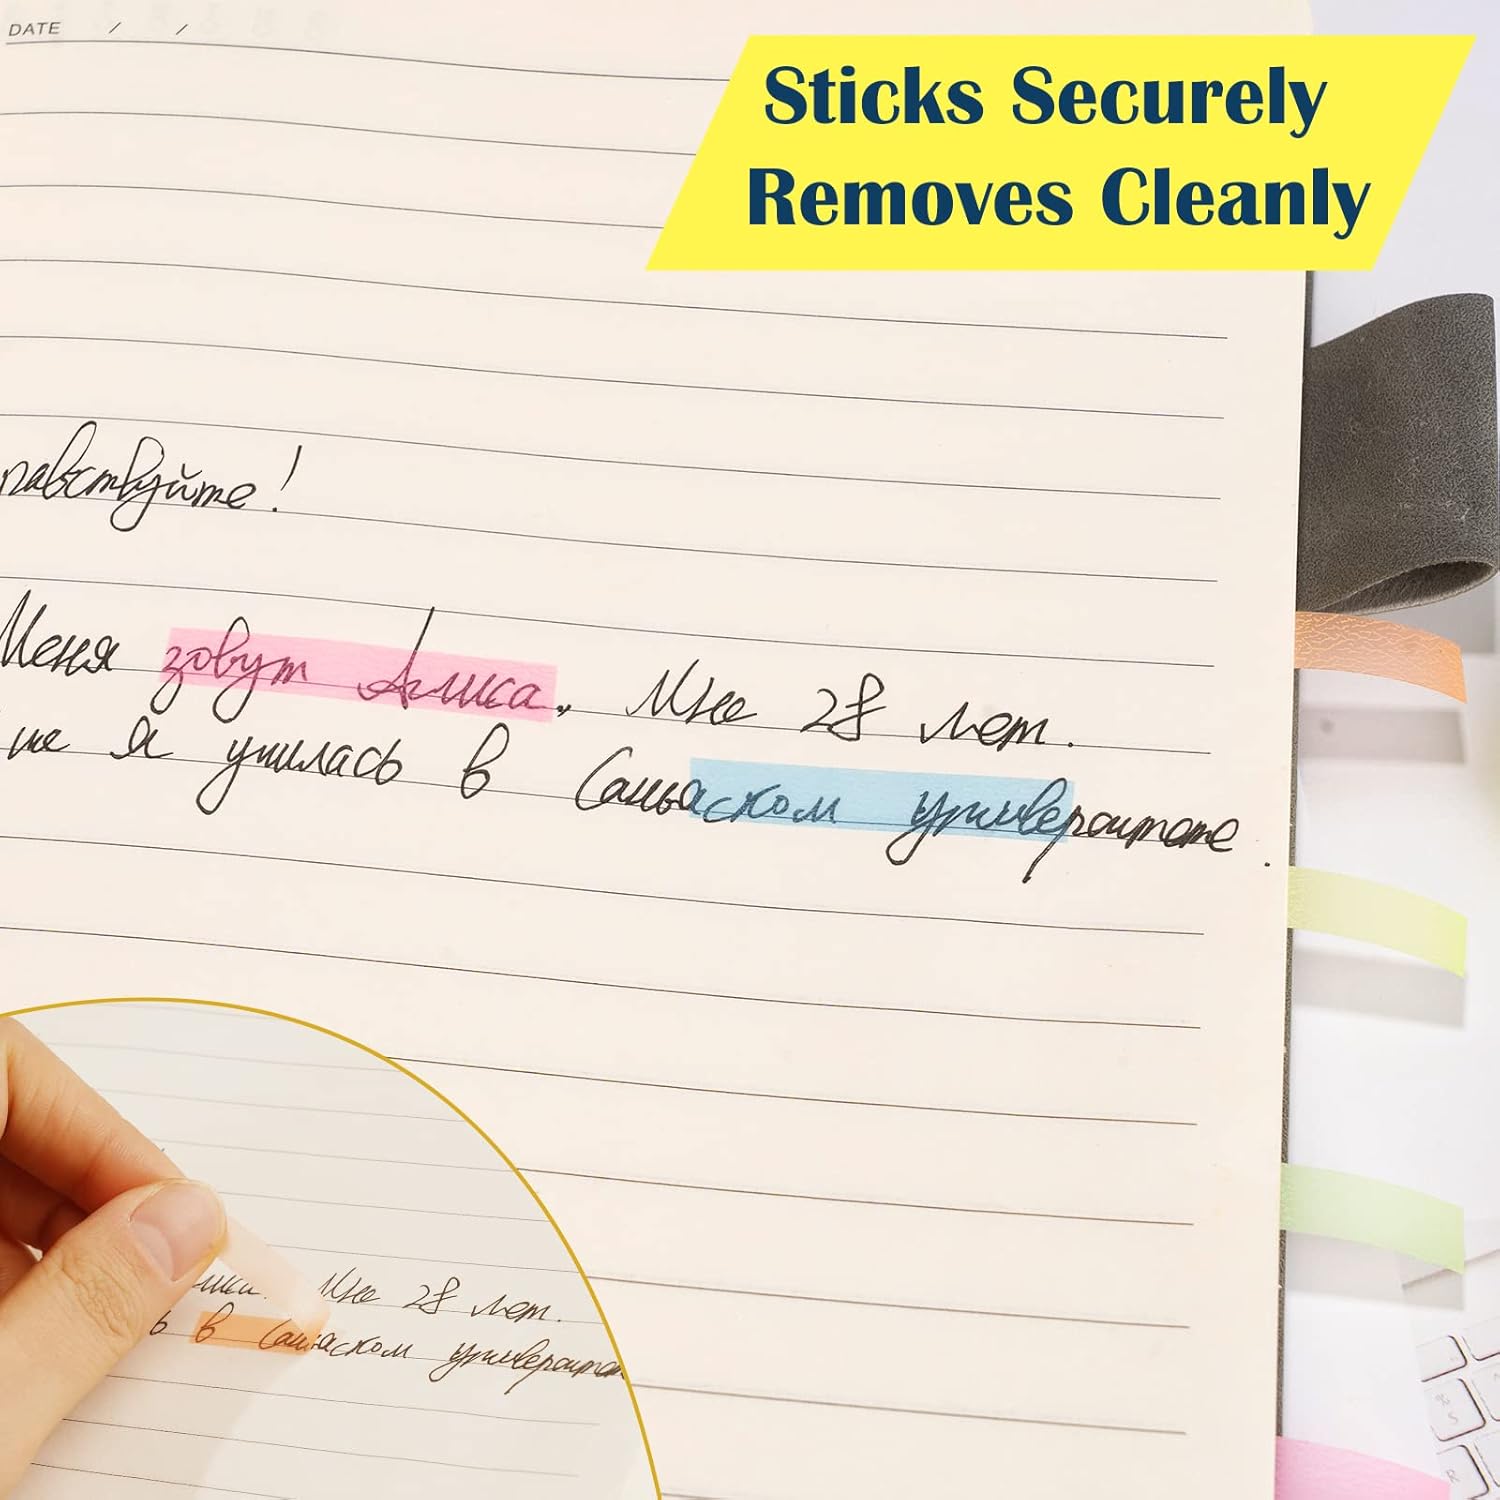 DATE / /
Sticks Securely
Removes Cleanly
равствуйте!
Меня зовут Алиса. Мне 28 лет.
же я училась в Саньаском университете.
лиса. Мне 28 лет.
ь в Саньаском университет
S
R